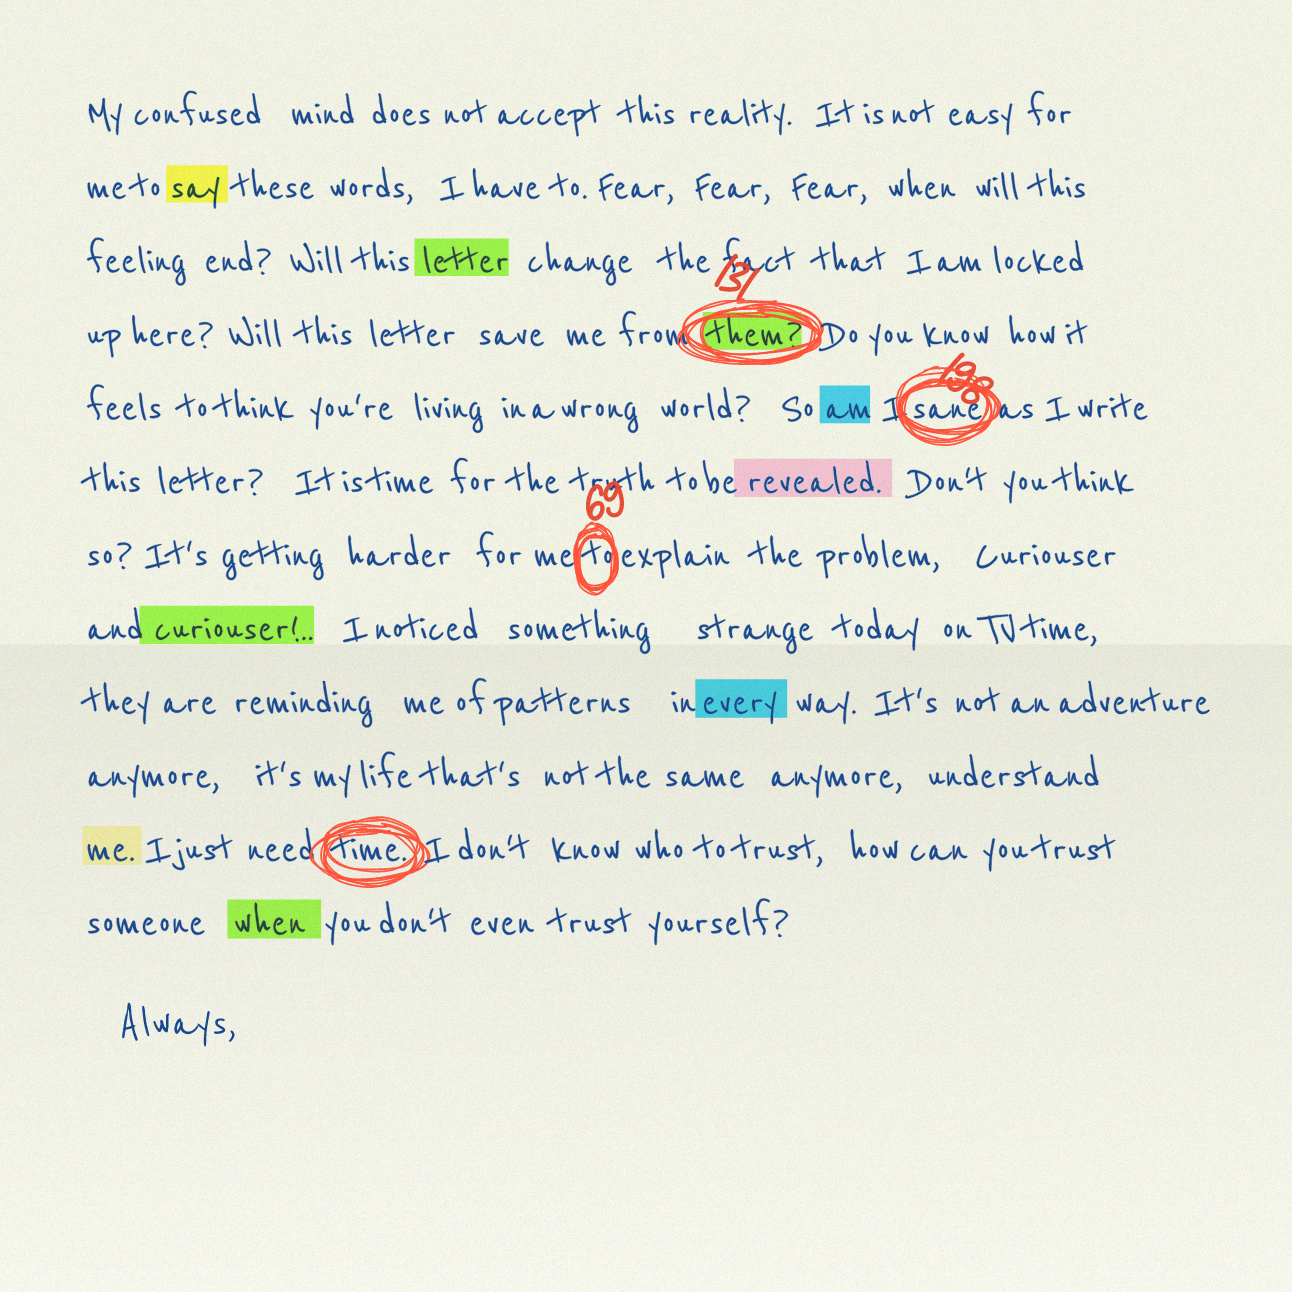 My confused mind does not accept this reality. It is not easy for
me to say these words, I have to. Fear, Fear, Fear, when will this
feeling end? Will this letter change the fact that I am locked
131
up here? Will this letter save me from them? Do you know how it
198
feels to think you're living in a wrong world? So am I sane as I write
this letter? It is time for the truth to be revealed. Don't you think
69
so? It's getting harder for me to explain the problem, Curiouser
and curiouser!.. I noticed something strange today on TV time,
they are reminding me of patterns in every way. It's not an adventure
anymore, it's my life that's not the same anymore, understand
me. I just need time. I don't know who to trust, how can you trust
someone when you don't even trust yourself?
Always,